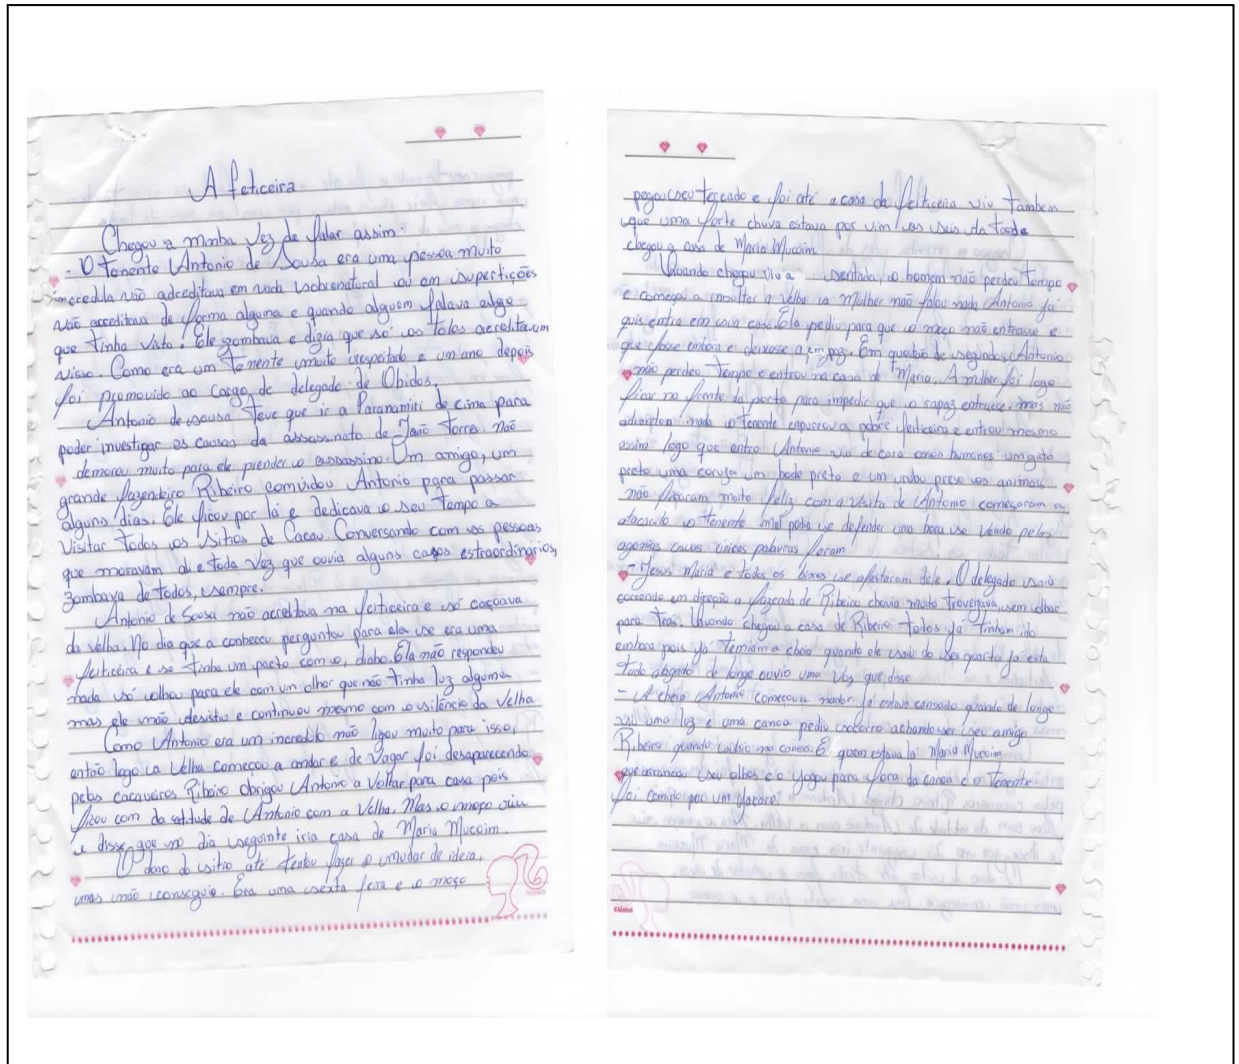 A feticeira
Chegou a minha vez de falar assim.
- O tenente Antonio de Sousa era uma pessoa muito
incredula não adcreditava em nada sobrenatural ou em supertições
não acreditava de forma alguma e quando alguem falava algo
que tinha visto. Ele zombava e dizia que só os tolos acreditavam
nisso. Como era um tenente muito respeitado e um ano depois
foi promovido ao Cargo de delegado de Obidos.
Antonio de sousa teve que ir a Paranamiri de cima para
poder investigar as causas da assassinato de João Torres. não
demorou muito para ele prender o assassino. Um amigo, um
grande fazendeiro Ribeiro comvidou Antonio para passar
alguns dias. Ele ficou por lá e dedicava o seu tempo a
Visitar todos os Sitios de Cacau. Conversando com as pessoas
que moravam ali e toda vez que ouvia alguns casos estraordinarios,
zombava de todos, sempre.
Antonio de Sousa não acreditava na feiticeira e só caçoava
da velha. No dia que a conheceu perguntou para ela se era uma
feiticeira e se tinha um pacto com o, diabo. Ela não respondeu
nada só olhou para ele com um olhar que não tinha luz alguma
mas ele não desistiu e continuou mesmo com o silêncio da Velha
Como Antonio era um incredulo não ligou muito para isso,
então logo a Velha começou a andar e de vagar foi desaparecendo
pelos cacaueiros Ribeiro obrigou Antonio a Voltar para casa pois
ficou com da atitude de Antonio com a Velha. Mas o moço riu
e disse que no dia seguinte iria casa de Maria Mucoim.
O dono do sitio até tentou fazer o mudar de ideia,
mas não conseguio. Era uma sexta feira e o moço
pegou seu terçado e foi até a casa da feiticeira viu tambem
que uma forte chuva estava por vim as seis da tarde
chegou a casa de Maria Mucoim
Quando chegou viu a sentada, o homem não perdeu tempo
e começou a insultar a velha a Mulher não falou nada Antonio já
quis entra em sova casa. Ela pediu para que o moço não entrasse e
que fosse embora e deixasse a em paz. Em questão de segundos, Antonio
não perdeu tempo e entrou na casa de Maria. A mulher foi logo
ficar na frente da porta para impedir que o rapaz entrasse. mais não
adiantou nada o tenente empurrou a pobre feiticeira e entrou mesmo
assim logo que entro Antonio viu de cara humanos um gato
preto uma coruja um bode preto e um urubu preso os animais
não ficaram muito feliz com a visita de Antonio começaram a
atacalo o tenente mal podia se defender uma hora se vendo pelas
agonias suas únicas palavras foram
- Jesus Maria e todos os bixos se afastaram dele. O delegado saiu
correndo em direção a fazenda de Ribeiro chovia muito trovejava, sem olhar
para tras. Quando chegou a casa de Ribeiro todos já tinham ido
embora pois já temiam a cheia quando ele saio do seu quarto já esta
todo alagado de longe ouvio uma Voz que disse
- A cheia Antonio começou a nadar já estava cansado quando de longe
viu uma luz e uma canoa pediu socorro achando ser seu amigo
Ribeiro quando subiu na canoa. E quem estava lá Maria Mucoim
que arrancou seu olhos e o jogou para fora da canoa e o tenente
foi comido por um Jacaré.